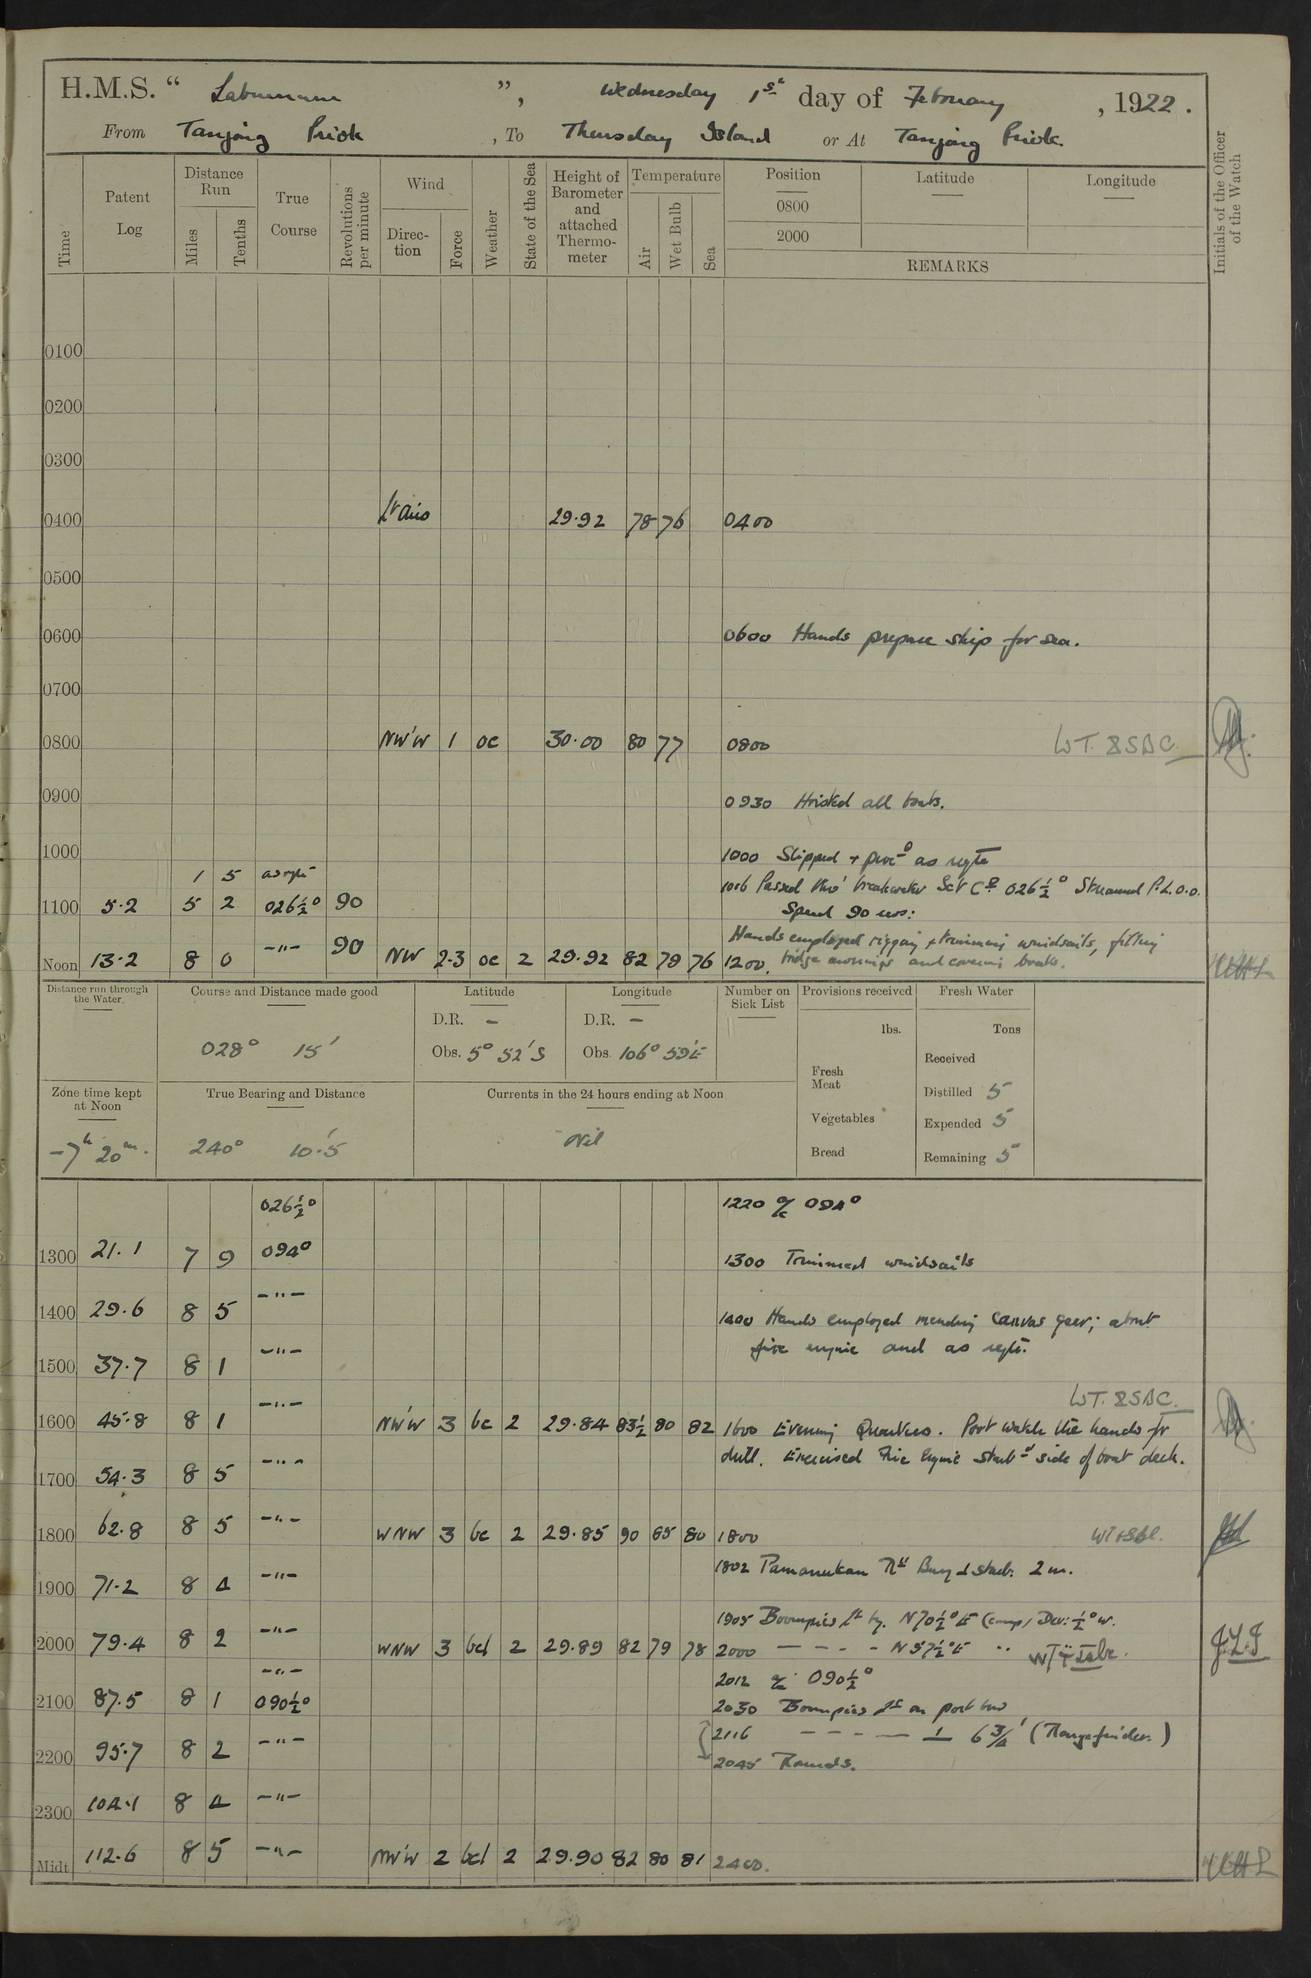 H.M.S. “ Laburnum ”, Wednesday 1st day of February , 1922.
From Tanjong Priok , To Thursday Island or At Tanjong Priok.
Time
Patent Log
Distance Run
Miles
Tenths
True Course
Revolutions per minute
Wind
Direc-tion
Force
Weather
State of the Sea
Height of Barometer and attached Thermo-meter
Temperature
Air
Wet Bulb
Sea
Position
0800
2000
Latitude
Longitude
REMARKS
Initials of the Officer of the Watch
0100
0200
0300
0400 Lt airs 29.92 78 76 0400
0500
0600 0600 Hands prepare ship for sea.
0700
0800 NW'W 1 oc 30.00 80 77 0800
0900
0930 Hoisted all boats.
1000
1000 Slipped + procd as reqte
1 5 as reqte
1016 Passed thro' breakwater Set Co 026½° Streamed P.L. 0.0.
1100 5.2 5 2 026½° 90
Speed 90 revs:
Hands employed rigging & trimming windsails, fitting
Noon 13.2 8 0 –"– 90 NW 2-3 oc 2 29.92 82 79 76 1200. bridge awnings and covering boats.
Distance run through the Water.
Course and Distance made good
028° 15'
Latitude
D.R. –
Obs. 5° 52' S
Longitude
D.R. –
Obs. 106° 59' E
Number on Sick List
Provisions received
lbs.
Fresh Meat
Vegetables
Bread
Fresh Water
Tons
Received
Distilled 5
Expended 5
Remaining 5
Zone time kept at Noon
–7h 20m.
True Bearing and Distance
240° 10.5'
Currents in the 24 hours ending at Noon
Nil
026½° 1220 a/c 094°
1300 21.1 7 9 094° 1300 Trimmed windsails
1400 29.6 8 5 –"– 1400 Hands employed mending canvas gear; about
fire engine and as reqte.
1500 37.7 8 1 –"–
1600 45.8 8 1 –"– NW'W 3 bc 2 29.84 83½ 80 82 1600 Evening Quarters. Port watch the hands for
drill. Exercised Fire Engine starbd side of boat deck.
1700 54.3 8 5 –"–
1800 62.8 8 5 –"– WNW 3 bc 2 29.85 90 85 80 1800
1802 Pamanukan Rf Buoy ⊥ starb: 2 m.
1900 71.2 8 4 –"–
1905 Boompies Lt bg. N70½°E (comp) Dev: ½°W.
2000 79.4 8 2 –"– WNW 3 bcl 2 29.89 82 79 78 2000 – – – – N57½°E "
–"– 2012 a/c 090½°
2100 87.5 8 1 090½° 2030 Boompies Lt on port bow
2116 – – – – ⊥ 6¾' (Rangefinder)
2200 95.7 8 2 –"–
2045 Rounds.
2300 104.1 8 4 –"–
Midt 112.6 8 5 –"– NW'W 2 bcl 2 29.90 82 80 81 2400.